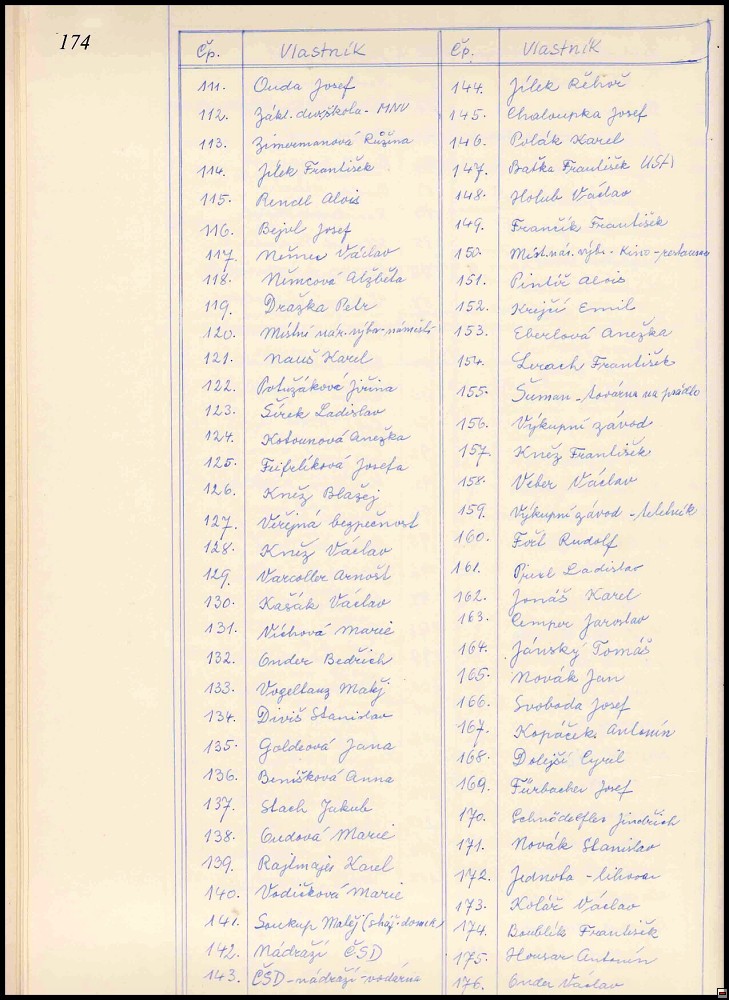 174
Čp. Vlastník
111. Ouda Josef
112. Zákl. dev. škola - MNV
113. Zimermanová Růžena
114. Jílek František
115. Rendl Alois
116. Bejvl Josef
117. Němec Václav
118. Němcová Alžběta
119. Dražka Petr
120. Místní nár. výbor - náměstí
121. Nauš Karel
122. Potužáková Jiřina
123. Šírek Ladislav
124. Kotounová Anežka
125. Josefa
126. Kněz Blažej
127. Veřejná bezpečnost
128. Kněz Václav
129. Arnošt
130. Kašák Václav
131. Víchová Marie
132. Onder Bedřich
133. Vogeltanz Matěj
134. Diviš Stanislav
135. Goldeová Jana
136. Benišková Anna
137. Stach Jakub
138. Oudová Marie
139. Rajtmajer Karel
140. Vodičková Marie
141. Soukup Matěj (stáj. domek)
142. Nádraží ČSD
143. ČSD - nádraží - vodárna
Čp. Vlastník
144. Jílek Řehoř
145. Chaloupka Josef
146. Polák Karel
147. Baťka František USA
148. Holub Václav
149. Frančík František
150. Míst. nár. výbr. - Kino - restaurace
151. Pintíř Alois
152. Krejčí Emil
153. Eberlová Anežka
154. Lerach František
155. Šuman - továrna na prádlo
156. Výkupní závod
157. Kněz František
158. Veber Václav
159. Výkupní závod - teletník
160. Fořt Rudolf
161. Ladislav
162. Jonáš Karel
163. Cemper Jaroslav
164. Jánský Tomáš
165. Novák Jan
166. Svoboda Josef
167. Kopáček Antonín
168. Dolejší Cyril
169. Fürbacher Josef
170. Jindřich
171. Novák Stanislav
172. Jednota - lihovar
173. Kolář Václav
174. Boublík František
175. Housar Antonín
176. Onder Václav